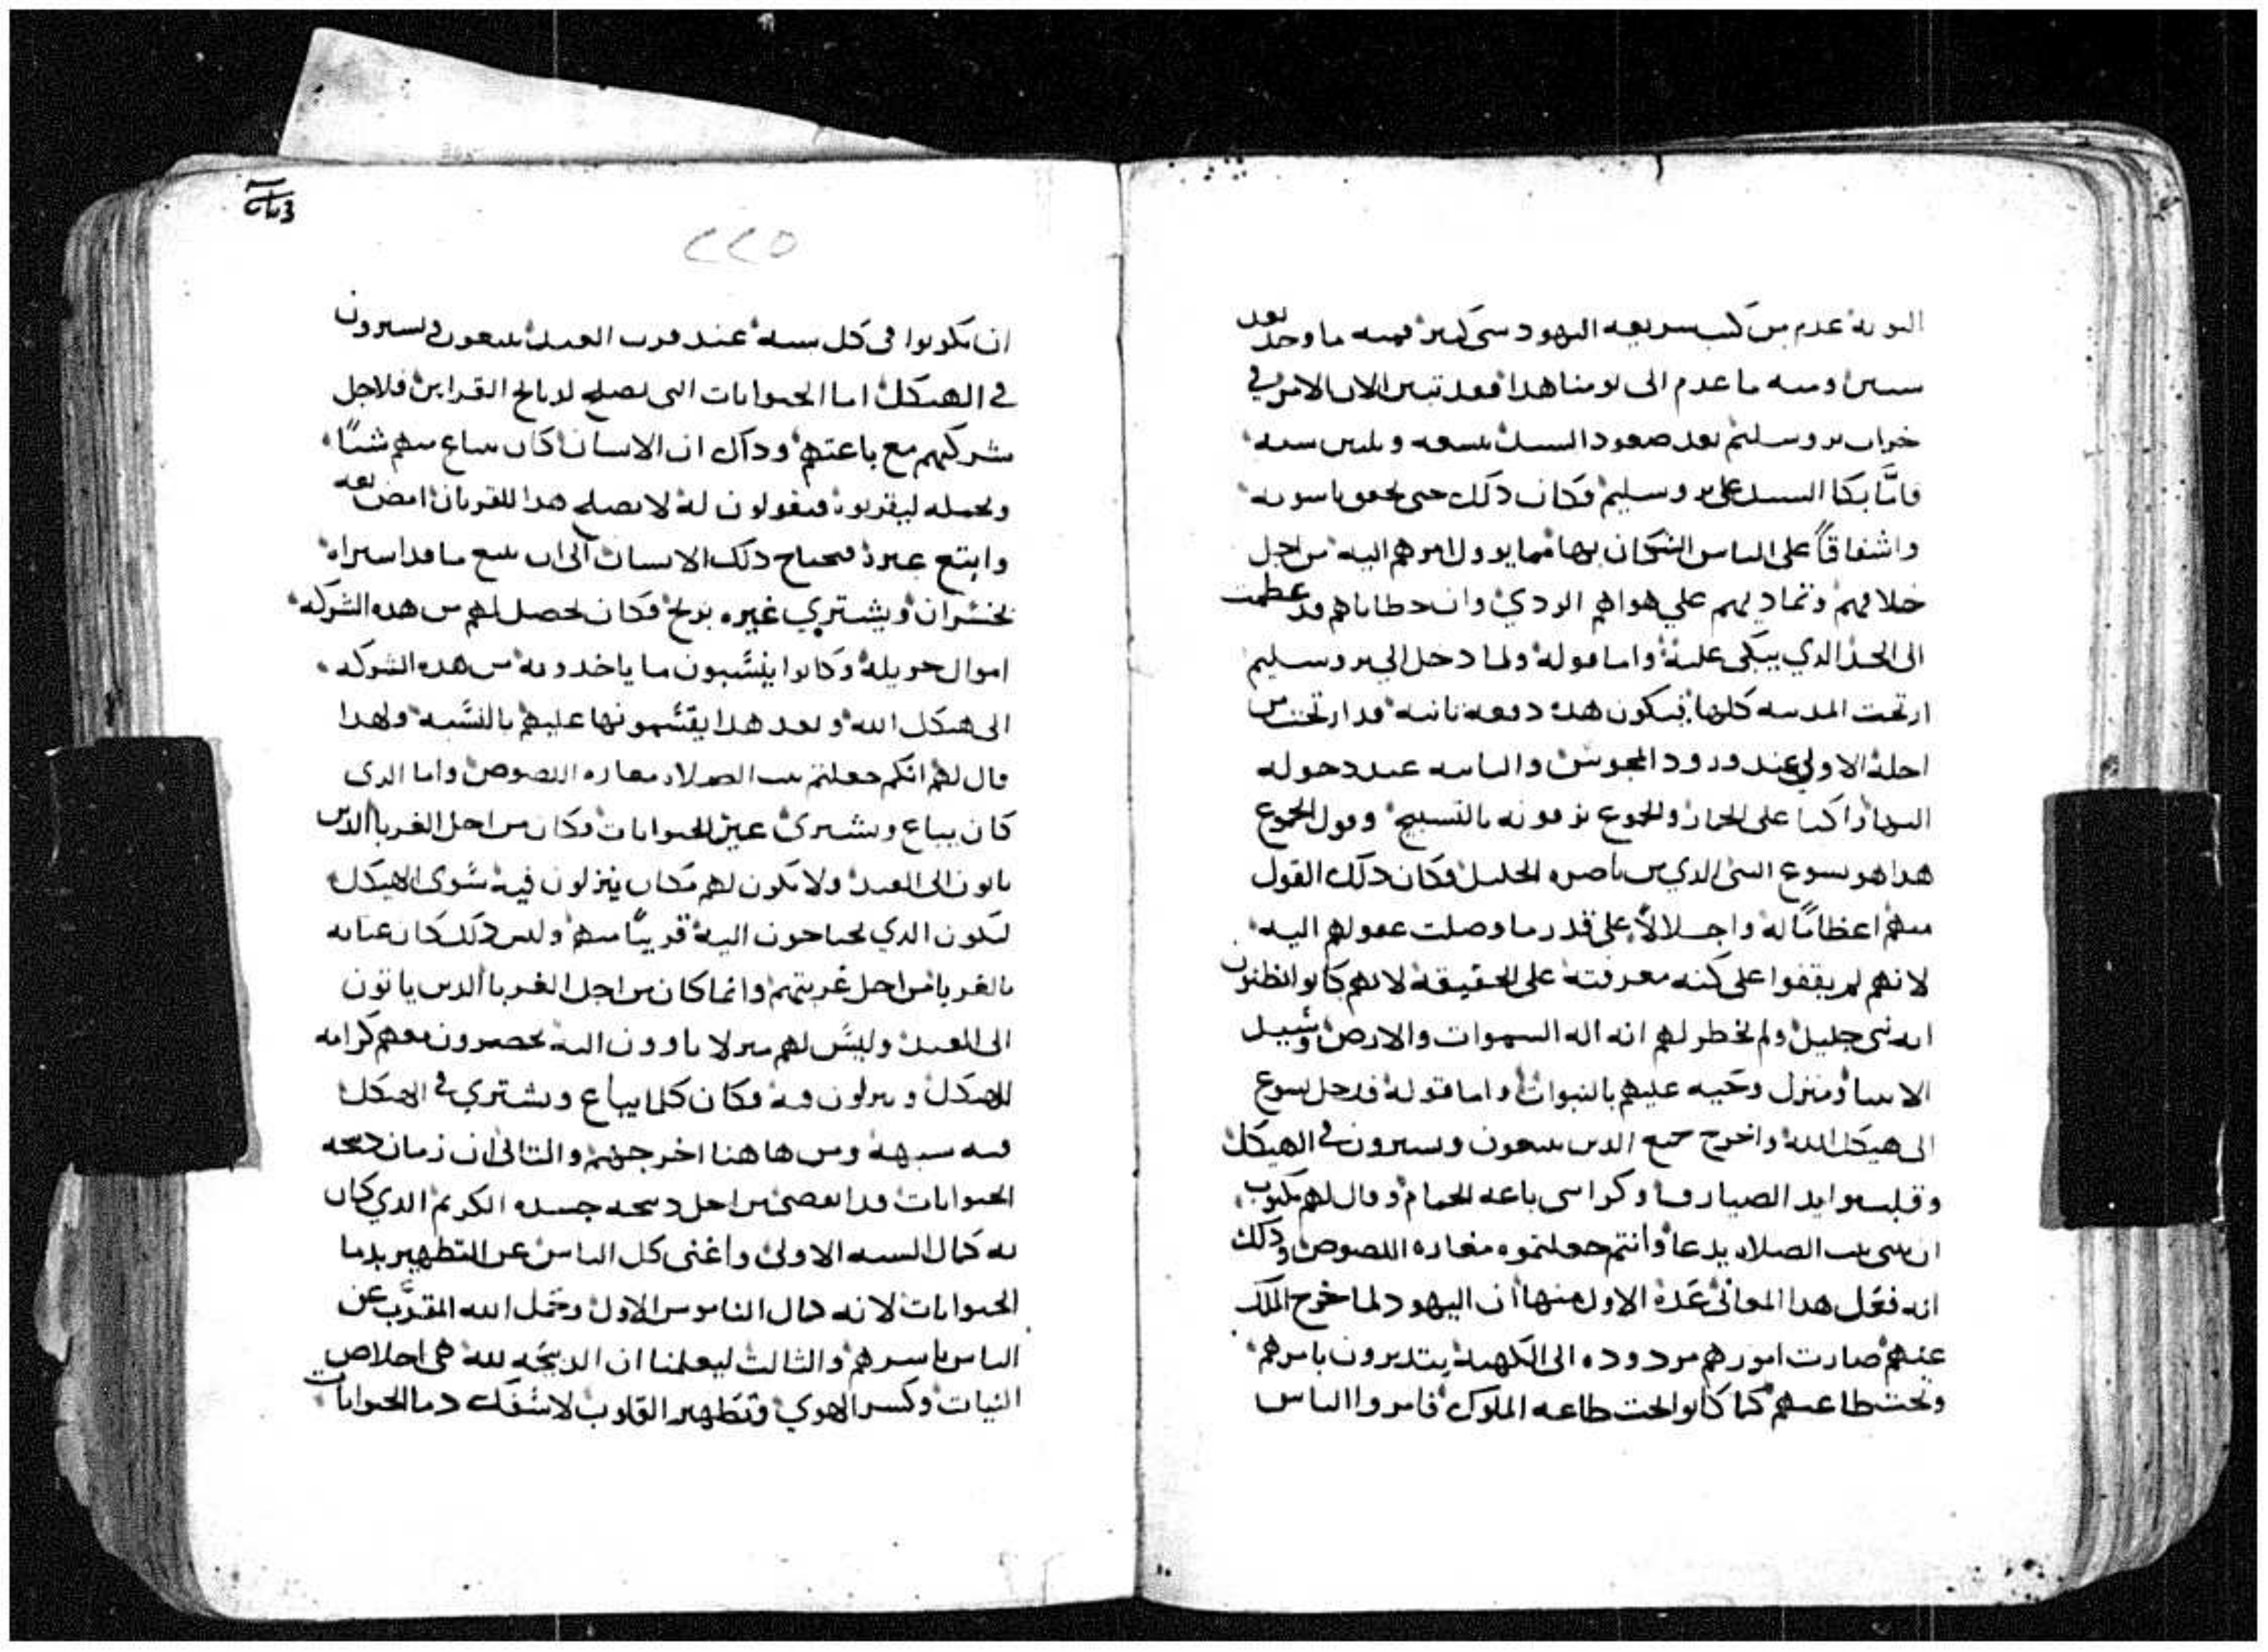 النوبة عدم من كتب سريعه اليهود سى كبير قيمه ما وجد بعد
سنين ومنه ما عدم الى يومنا هدا فقد تبين الان الامر في
خراب يروسليم بعد صعود السيد بتسعه وثلثين سنه
فاما بكا السيد على يروسليم فكان ذلك حتى يحقق ناسوته
واشفاقاً على الناس السكان بها مما يوول امرهم اليه من اجل
خلافهم وتماديهم علي هواهم الردي وان خطاياهم قد عظمت
الى الحد الدي يبكى عليه واما قوله ولما دخل الى يروسليم
ارتجت المدينه كلها فيكون هده دفعه تانيه قد ارتجت من
اجله الاولي عند ورود المجوس والتانيه عند دخوله
اليها راكبا على الحمار والجموع يزفونه بالتسبيح وقول الجموع
هدا هو يسوع النبي الدي من ناصرة الجليل فكان دلك القول
منهم اعظامًا له واجلالاً على قدر ما وصلت عقولهم اليه
لانهم لم يقفوا على كنه معرفته على الحقيقه لانهم كانوا يظنون
انه نبي جليل ولم يخطر لهم انه اله السموات والارض وسيد
الانبيا ومنزل وحيه عليهم بالنبوات واما قوله فدخل يسوع
الى هيكل الله واخرج جميع الدين يبيعون ويسترون في الهيكل
وقلب موايد الصيارف وكراسى باعه الحمام وقال لهم مكتوب
ان بيتى بيت الصلاه يدعا وانتم جعلتموه مغاره اللصوص ودلك
انه فعل هدا لمعاني عدة الاول منها ان اليهود لما خرج الملك
عنهم صارت امورهم مردوده الى الكهنة يتدبرون بامرهم
وتحت طاعتهم كما كانوا تحت طاعه الملوك فامروا الناس
٢٢٥
ان يكونوا فى كل سنة عند قرب العيد يبيعون ويسترون
في الهيكل اما الحيوانات التى تصلح لدبايح القرابين فلاجل
شركتهم مع باعتهم وداك ان الانسان كان يبتاع منهم شيًا
ويحمله ليقربوه فيقولون له لا يصلح هدا للقربان امض بعه
وابتع غيرة فيحتاج دلك الانسان الى ان يبيع ما قد استراه
بخسران ويشتري غيره بربح فكان يحصل لهم من هده الشركه
اموال جزيله وكانوا ينسبون ما ياخدونه من هده الشركه
الى هيكل الله وبعد هدا يقسمونها عليهم بالنسبه ولهدا
قال لهم انكم جعلتم بيت الصلاه مغاره اللصوص واما الدى
كان يباع ويشترى غير الحيوانات فكان من اجل الغربا الدين
ياتون الى العيد ولا يكون لهم مكان ينزلون فيه سوى الهيكل
ليكون الدي يحتاجون اليه قريبًا منهم وليس دلك كان عنايه
بالغربا من اجل غربتهم وانما كان من اجل الغربا الدين ياتون
الى العيد وليس لهم منزلا ياوون اليه يحضرون معهم كرامه
للهيكل وينزلون فيه فكان كلما يباع ويشتري في الهيكل
فيه سبهة ومن هاهنا اخرجهم والتانى ان زمان دبيحه
الحيوانات قد انقضى من اجل دبيحه جسده الكريم الدي كان
به كمال السنه الاولى واغنى كل الناس عن التطهير بدما
الحيوانات لانه كمال الناموس الاول وحمل الله المقرب عن
الناس باسرهم والثالث ليعلمنا ان الدبيحه لله هى اخلاص
النيات وكسر الاهوي وتطهير القلوب لا سفك دما الحيوانات